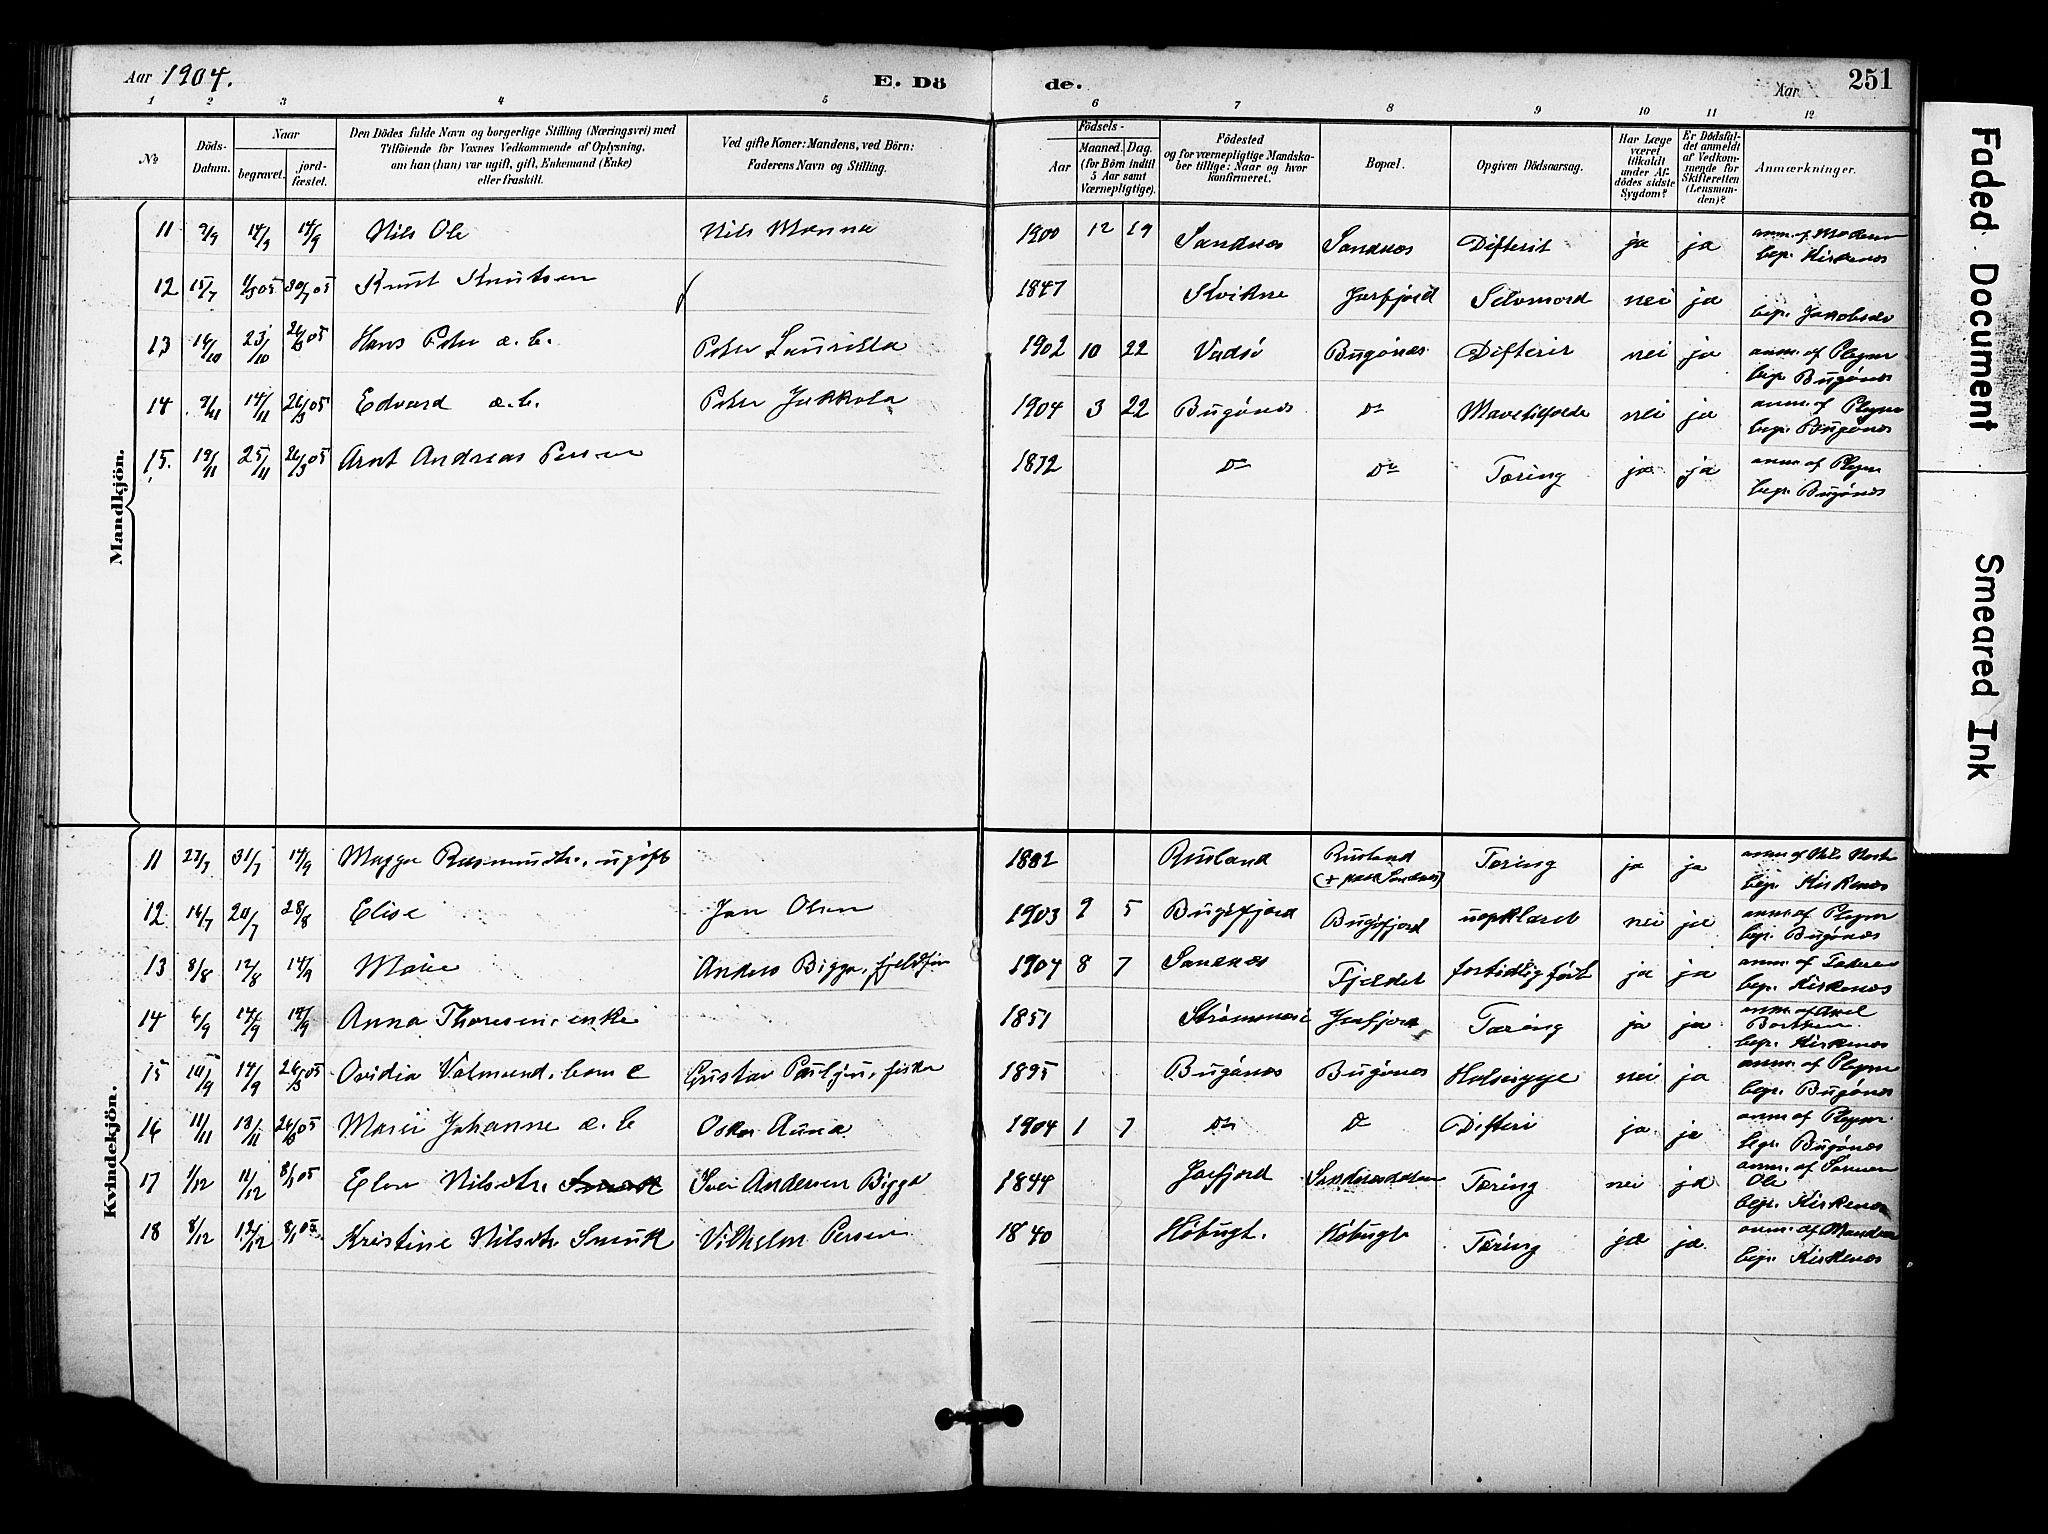 Aar 1904.
E. Dö de.
Aar
251
1 2 3 4 5 6 7 8 9 10 11 12
No
Döds-Datum.
Naar
begravet.
jord-fæstet.
Den Dödes fulde Navn og borgerlige Stilling (Næringsvei) med
Tilföiende for Voxnes Vedkommende af Oplysning,
om han (hun) var ugift, gift, Enkemand (Enke)
eller fraskilt.
Ved gifte Koner: Mandens, ved Börn:
Faderens Navn og Stilling.
Födsels-
Aar
Maaned. Dag.
(for Börn indtil
5 Aar samt
Værnepligtige).
Födested
og for værnepligtige Mandska-
ber tillige: Naar og hvor
konfirmeret.
Bopæl.
Opgiven Dödsaarsag.
Har Læge
været
tilkaldt
under Af-
dödes sidste
Sygdom?
Er Dödsfal-
det anmeldt
af Vedkom-
mende for
Skifteretten
(Lensman-
den)?
Anmærkninger.
Mandkjön.
11 9/9 14/9 14/9 Nils Ole Nils Manna 1900 12 19 Sandnæs Sandnæs Difterit ja ja anm. af Moderen
begr. Kirkenæs
12 15/7 30/7 05 Knut Knutsen 1847 Kvikne Jarfjord Selvmord nei ja
begr. Jakobselv
13 16/10 23/10 26/3 05 Hans Peter æ. b. Peter Laurikka 1902 10 22 Vadsö Bugönæs Difterit nei ja anm. af Plejer
begr. Bugönæs
14 9/11 14/11 26/3 05 Edvard æ. b. Peter Jakkola 1904 3 22 Bugönæs Do nei ja anm. af Plejer
begr. Bugönæs
15. 19/11 25/11 26/3 05 Arnt Andreas Persen 1872 Do Do Tæring ja ja anm. af Plejer
begr. Bugönæs
Kvindekjön.
11 27/7 31/7 14/9 Magga Rasmusdtr., ugift 1882 Rusland Rusland Tæring ja ja anm. af Nils
(+ paa Sandnæs) begr. Kirkenæs
12 16/7 20/7 28/8 Elise Jan Olsen 1903 9 5 Bugöfjord Bugöfjord uopklaret nei ja anm. af Plejer
begr. Bugönæs
13 8/8 12/8 14/9 Marie Anders Bigga, fjeldfin 1904 8 7 Sandnæs Fjeldet fortidlig född ja ja anm. af Faderen
begr. Kirkenæs
14 6/9 14/9 14/9 Anna Thoresen, enke 1851 Strömsnæs Jarfjord Tæring ja ja anm. af Axel
begr. Kirkenæs
15 10/9 14/9 26/3 05 Ovidia Valmund, barn e Gustav Pauljju, fisker 1895 Bugönæs Bugönæs Halsesyge nei ja anm. af Plejer
begr. Bugönæs
16 11/11 18/11 26/3 05 Marie Johanne æ. b Oskar Auna 1904 1 7 Do Do Difteri ja ja anm. af Plejer
begr. Bugönæs
17 1/12 11/12 8/1 05 Elen Nilsdtr. Smuk Iver Andersen Bigga 1844 Jarfjord Sandnæsdalen Tæring nei ja anm. af Sønnen
Ole
begr. Kirkenæs
18 8/12 12/12 8/1 05 Kristine Nilsdtr Smuk Vilhelm Persen 1840 Höbugt. Höbugt Tæring ja ja. anm. af Manden
begr. Kirkenæs
Faded Document
Smeared Ink